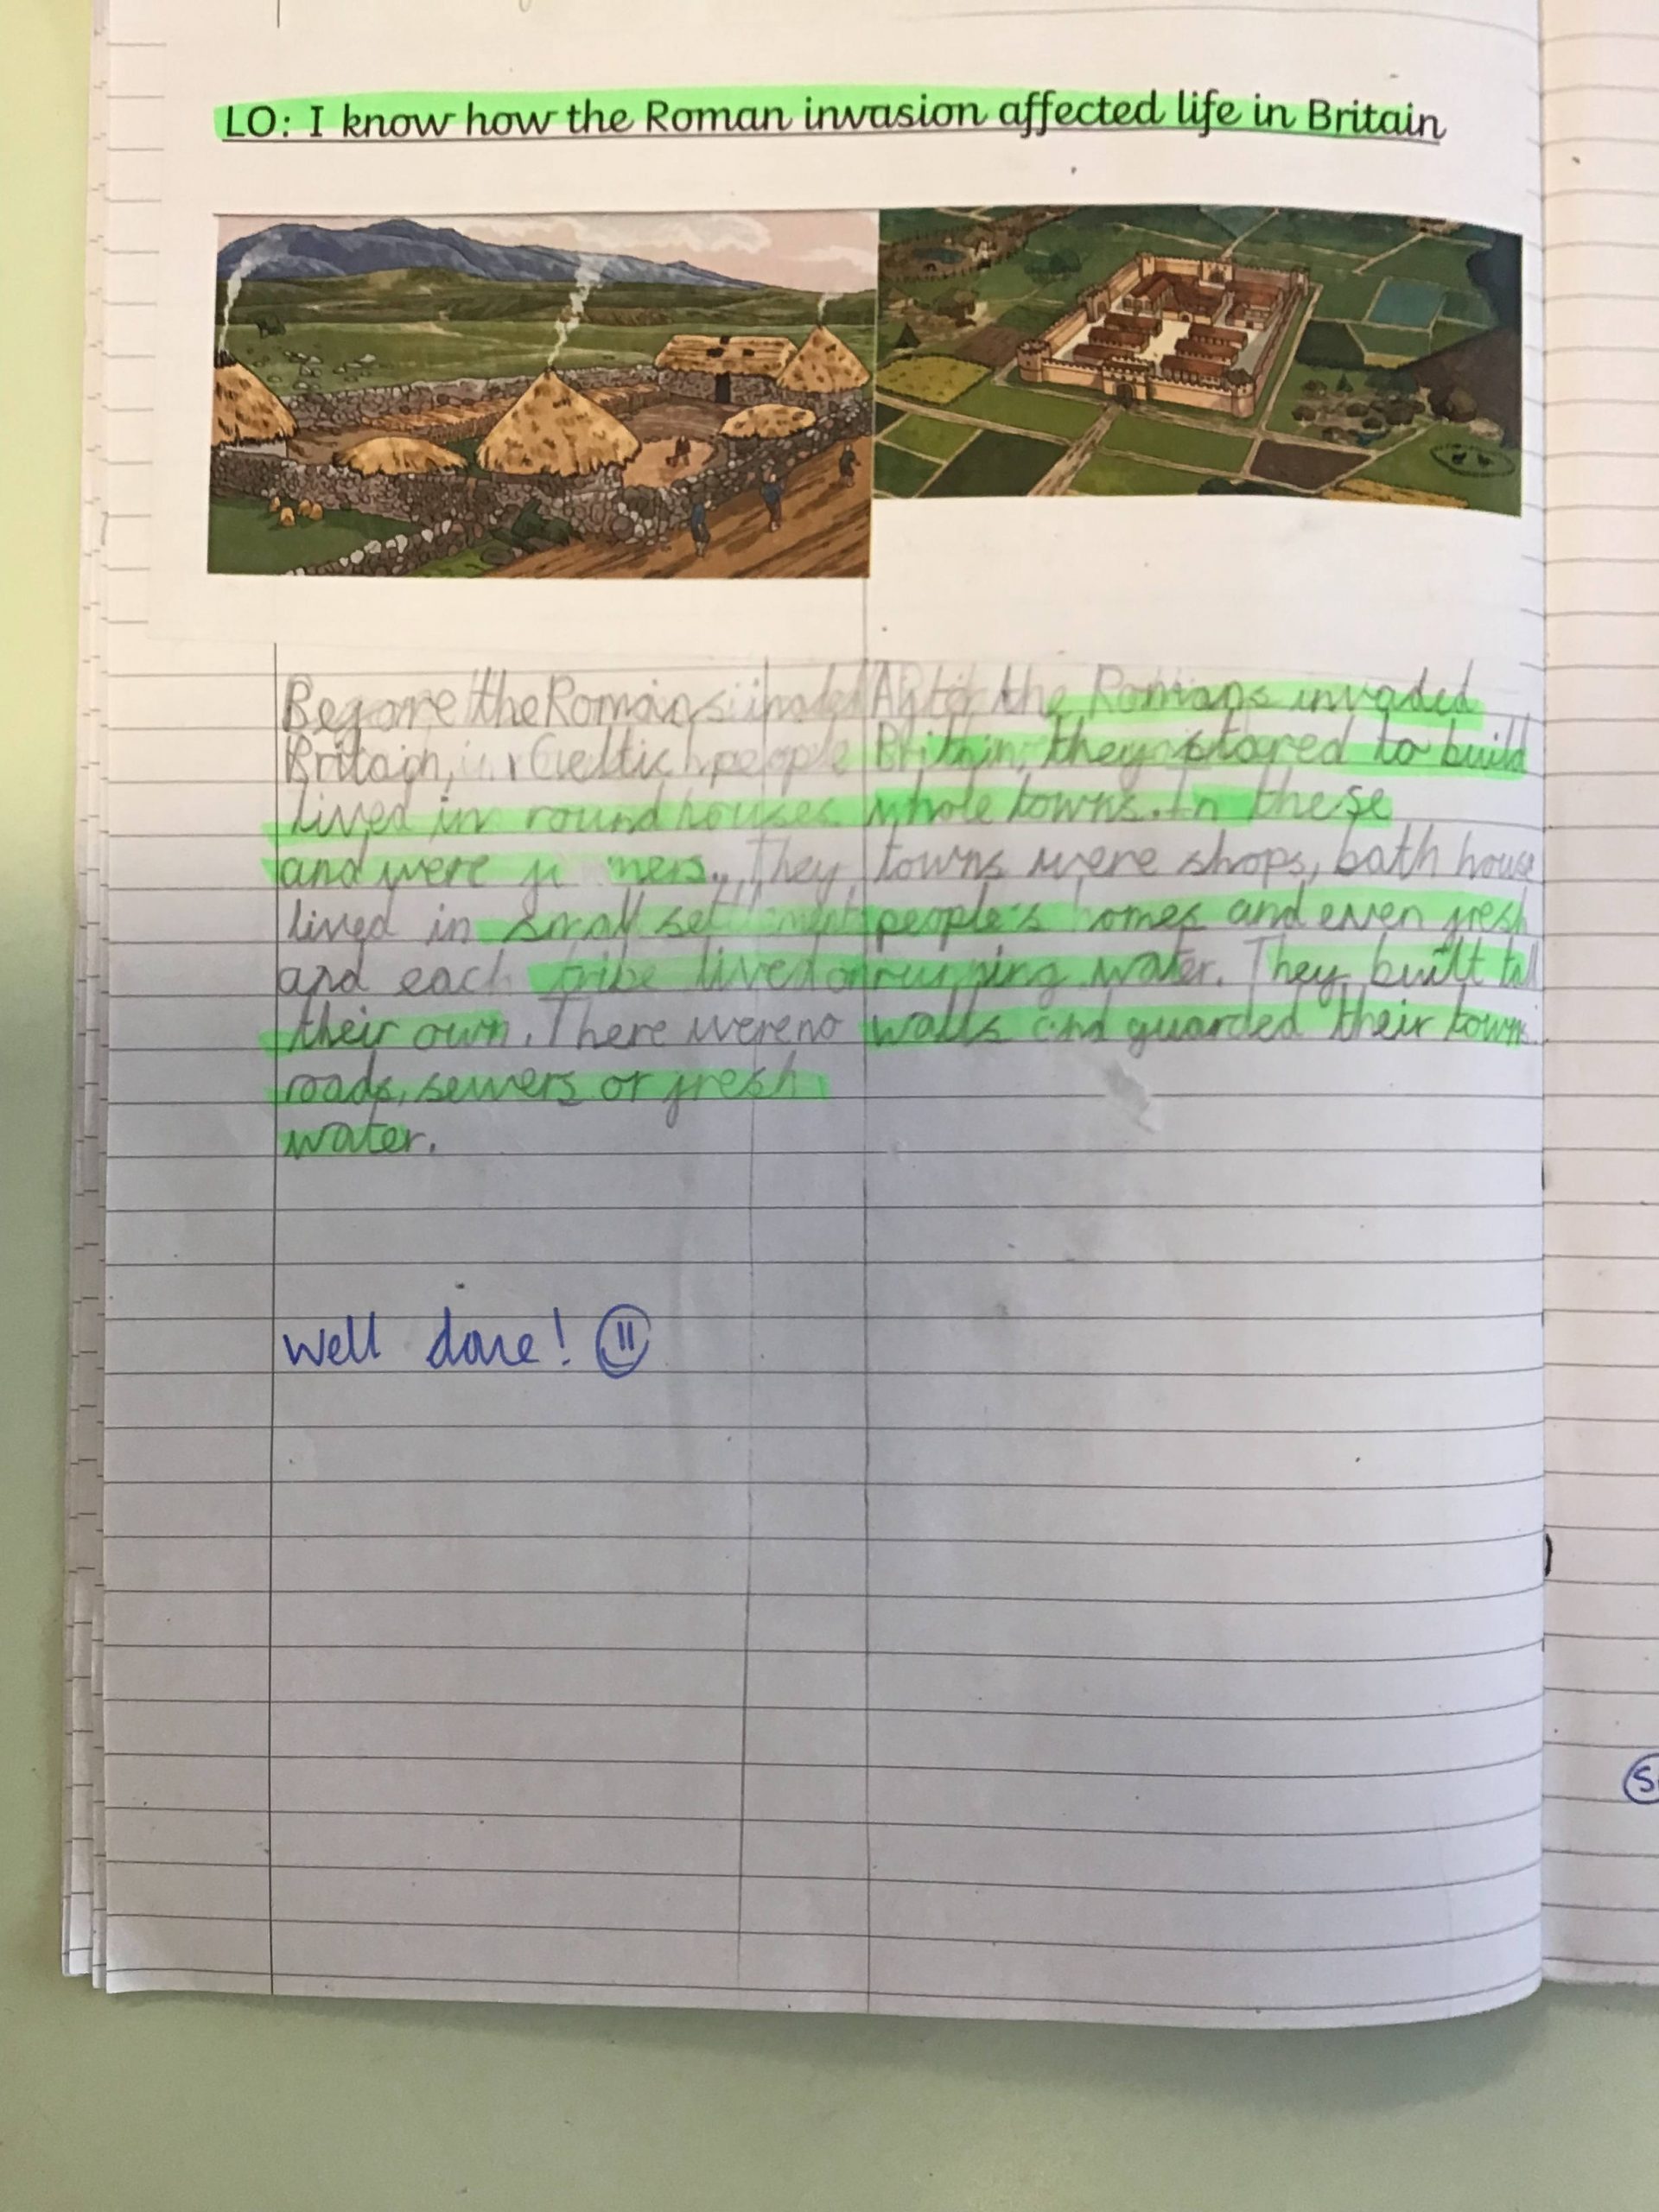 LO: I know how the Roman invasion affected life in Britain
Before the Romans invaded
Britain, Celtic people
lived in round houses
and were . They
lived in small settlements
and each tribe lived on
their own. There were no
roads, sewers or fresh
water.
After the Romans invaded
Britain, they stared to build
whole towns. In these
towns were shops, bath house
people's homes and even fresh
running water. They built tall
walls and guarded their towns.
Well done!